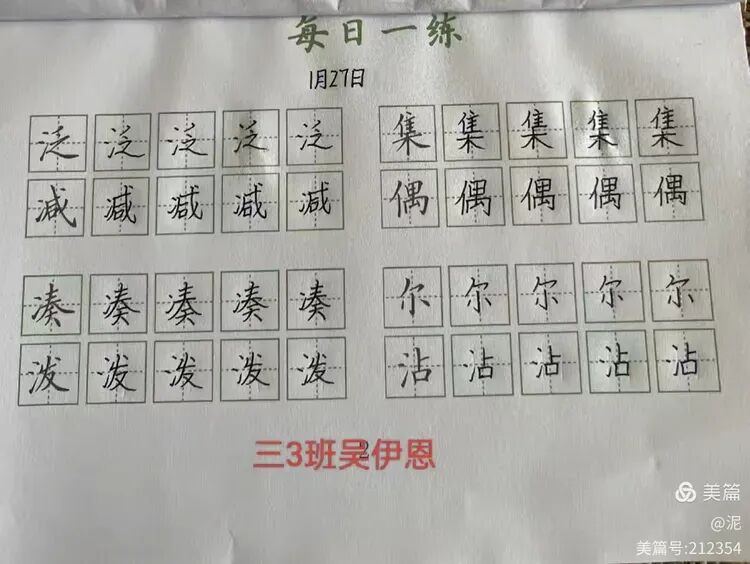 每日一练
1月27日
泛泛泛泛泛 集集集集集
减减减减减 偶偶偶偶偶
凑凑凑凑凑 尔尔尔尔尔
泼泼泼泼泼 沾沾沾沾沾
2
三3班吴伊恩
美篇
@泥
美篇号:212354